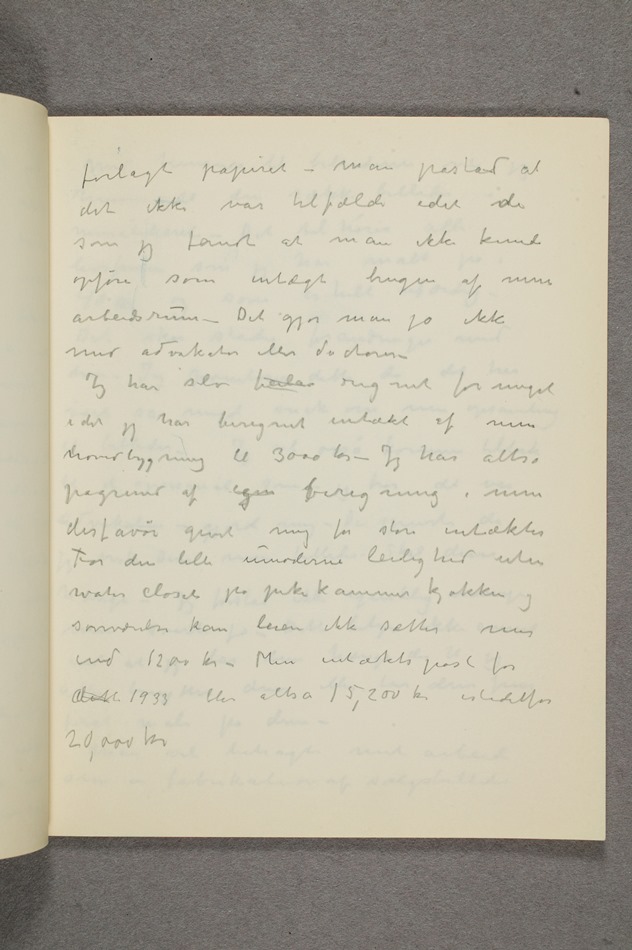 forlagt papiret – man paastod at
det ikke var tilfælde idet de
som jeg fandt at man ikke kunde
opføre som intægt brugen af mine
arbeidsrum – Det gjør man jo ikke
med advokater eller doctorer –
Jeg har selv regnet for meget
idet jeg har beregnet intækt af min
hovedbygning til 3000 kr – Jeg har altså
pagrund af egen beregning i min
disfavør givet mig for store intækter
For den lille umoderne leilighed uten
water closet på pikekammer kjøkken og
soveværelse kan leien ikke settes mer
end 1200 kr – Min intæktspost for
1933 blir altsa 15,200 kr istedetfor
20,000 kr